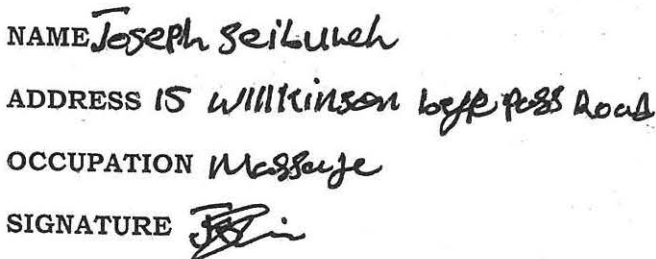 NAME Joseph Seiluneh
ADDRESS 15 Willkinson bye pass Road
OCCUPATION Massage
SIGNATURE